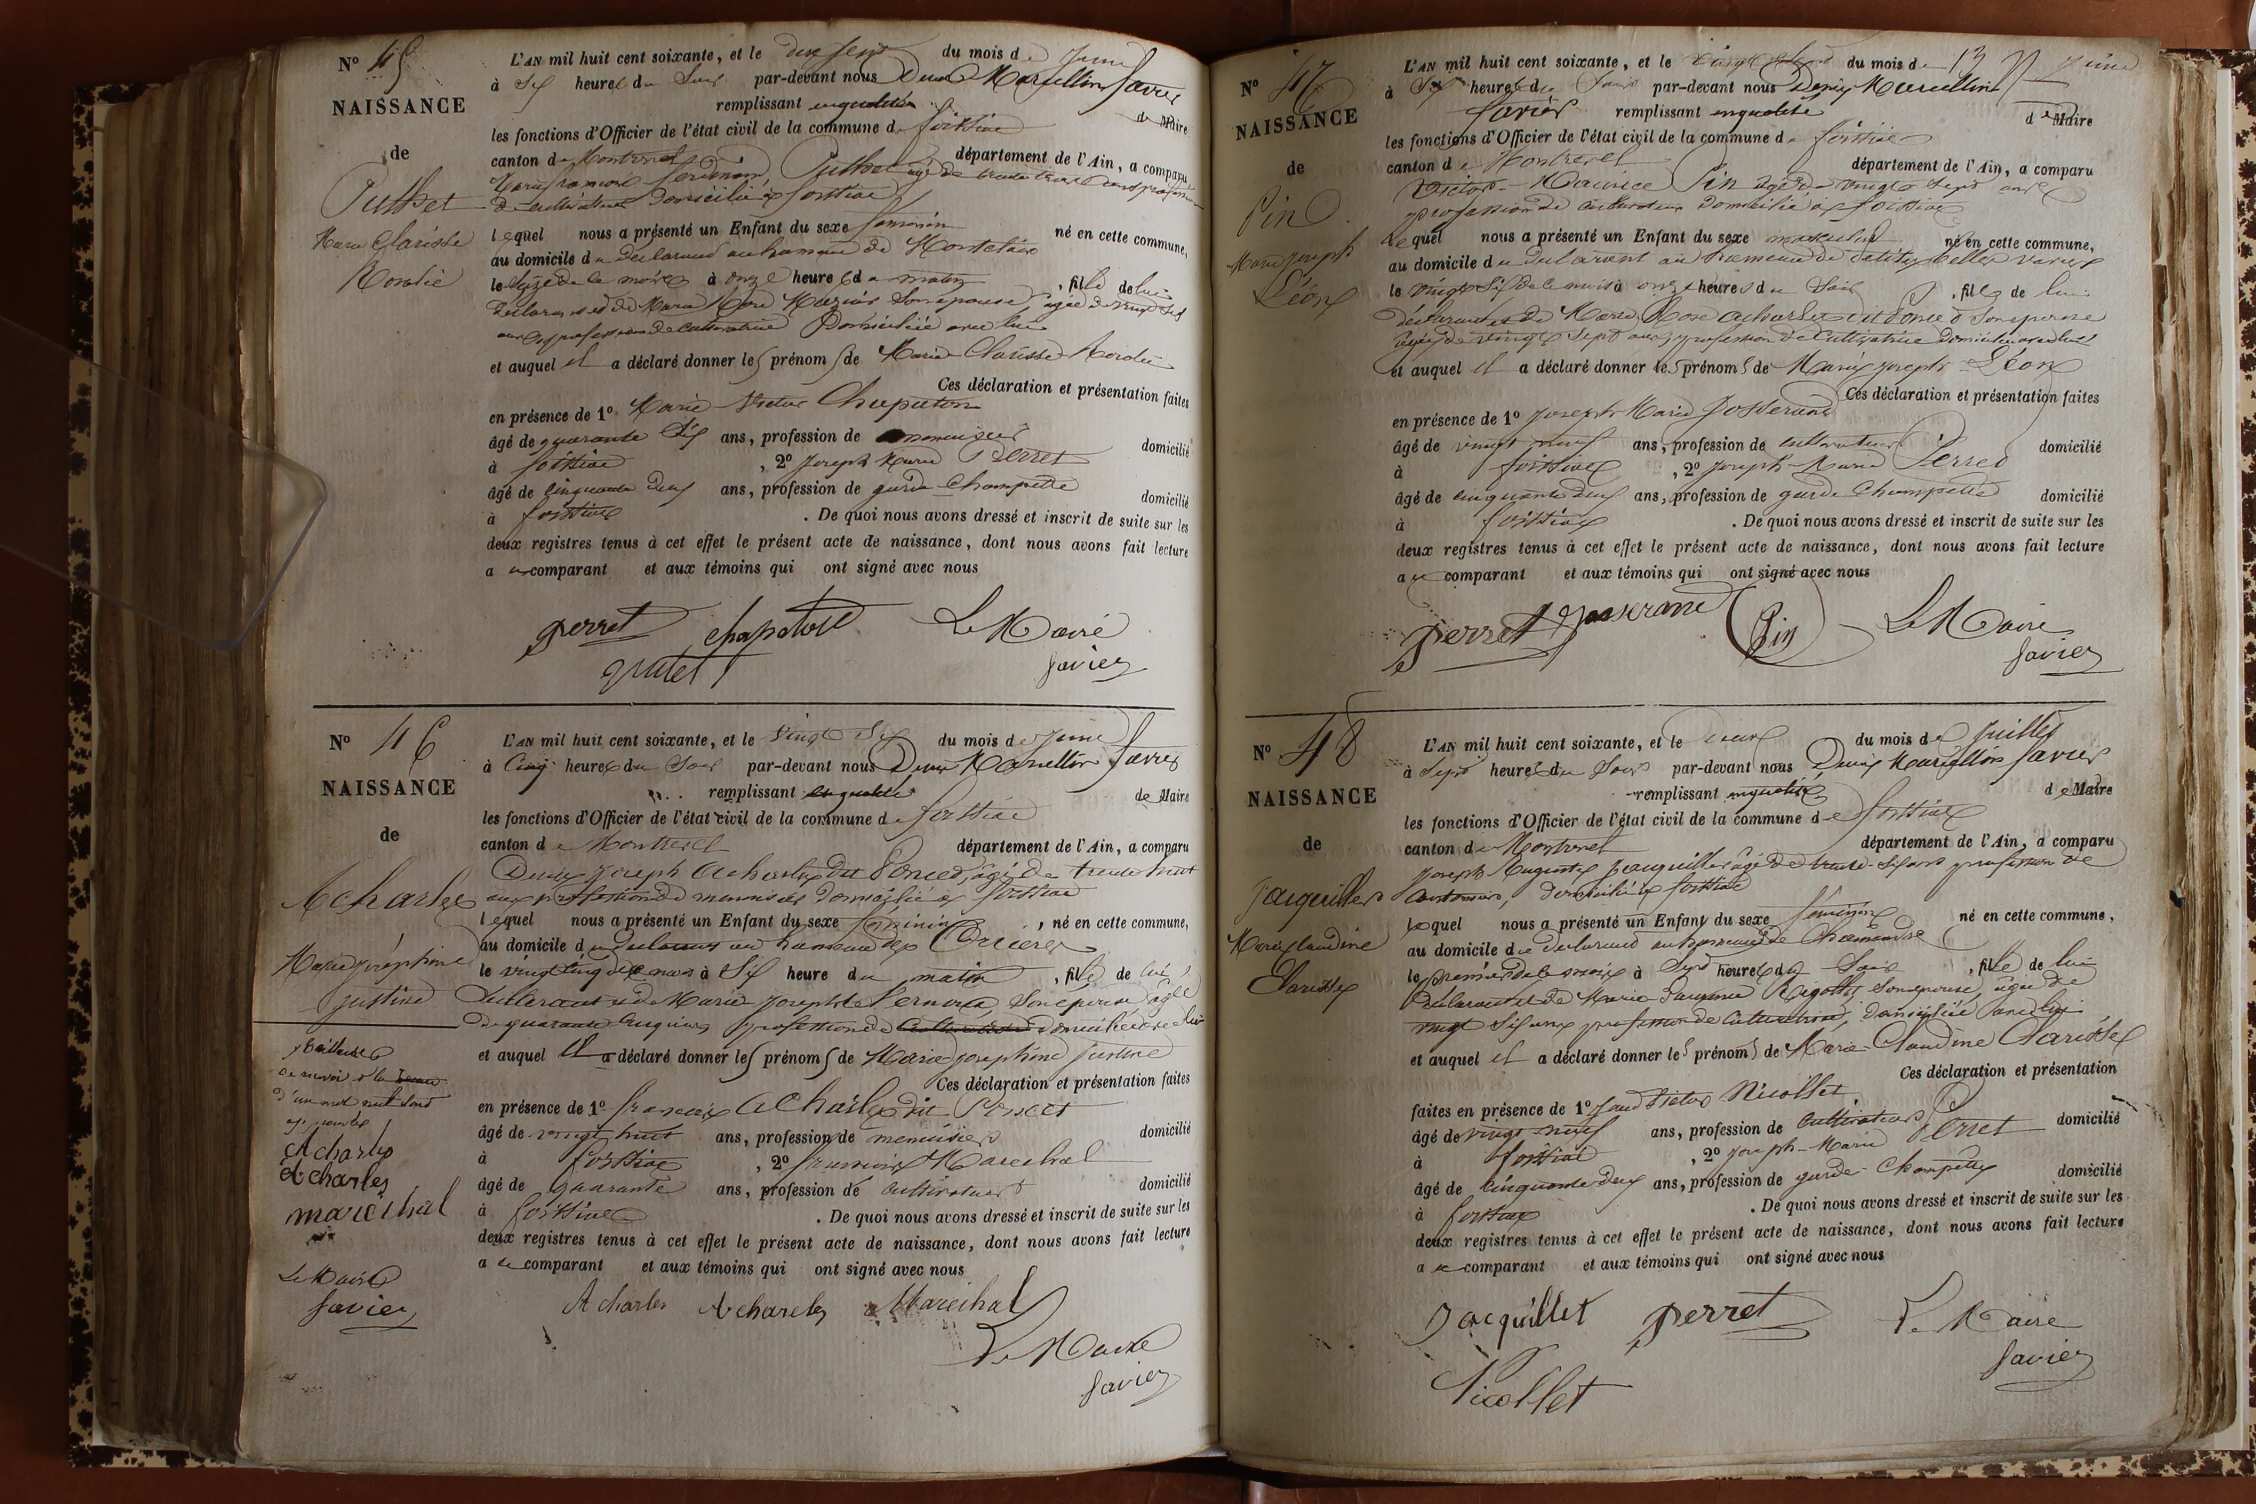 N° 45
NAISSANCE
de
Puthet
Marie Clarisse
Rosalie
L'AN mil huit cent soixante, et le dix sept du mois de juin
à six heures du soir par-devant nous Denis Marcellin Favier
remplissant en qualité de Maire
les fonctions d'Officier de l'état civil de la commune de foissiat
canton de Montrevel département de l'Ain, a comparu
Puthet âgé de trente trois ans profession
de cultivateur domicilié à foissiat
lequel nous a présenté un Enfant du sexe féminin né en cette commune,
au domicile du déclarant au hameau de
le seize de ce mois à onze heures du matin, fille de lui
déclarant et de Marie son épouse âgée de vingt six
ans profession de cultivatrice domiciliée avec lui
et auquel il a déclaré donner les prénoms de Marie Clarisse Rosalie
Ces déclaration et présentation faites
en présence de 1° Marie Victor Chapaton
âgé de quarante six ans, profession de menuisier domicilié
à foissiat, 2° Joseph Marie Perret
âgé de cinquante deux ans, profession de garde Champette domicilié
à foissiat. De quoi nous avons dressé et inscrit de suite sur les
deux registres tenus à cet effet le présent acte de naissance, dont nous avons fait lecture
au comparant et aux témoins qui ont signé avec nous
perret chapaton Le Maire
putet favier
N° 46
NAISSANCE
de
Acharles
Marie joséphine
justine
L'AN mil huit cent soixante, et le vingt six du mois de juin
à cinq heures du soir par-devant nous Denis Marcellin Favier
remplissant en qualité de Maire
les fonctions d'Officier de l'état civil de la commune de foissiat
canton de Montrevel département de l'Ain, a comparu
Denis joseph Acharles dit Poncet, âgé de trente huit
ans profession de menuisier domicilié à foissiat
lequel nous a présenté un Enfant du sexe féminin, né en cette commune,
au domicile du déclarant au hameau des
le vingt cinq de ce mois à six heure du matin, fille de lui
déclarant et de Marie josephte son épouse âgée
de quarante cinq ans profession de domiciliée avec lui
et auquel il a déclaré donner les prénoms de Marie joséphine justine
Ces déclaration et présentation faites
en présence de 1° françois Acharles dit Poncet
âgé de vingt huit ans, profession de menuisier domicilié
à foissiat, 2° françois Marechal
âgé de quarante ans, profession de cultivateur domicilié
à foissiat. De quoi nous avons dressé et inscrit de suite sur les
deux registres tenus à cet effet le présent acte de naissance, dont nous avons fait lecture
au comparant et aux témoins qui ont signé avec nous
Acharles Acharles Marechal
Le Maire
favier
d'un mot nul
Acharles
Acharles
marechal
Le Maire
favier
N° 47
NAISSANCE
de
Pin
Marie joseph
Léon
L'AN mil huit cent soixante, et le vingt sept du mois de juin
à six heures du soir par-devant nous Denis Marcellin
favier remplissant en qualité de Maire
les fonctions d'Officier de l'état civil de la commune de foissiat
canton de Montrevel département de l'Ain, a comparu
Victor Maurice Pin âgé de vingt sept ans
profession de cultivateur domicilié à foissiat
Lequel nous a présenté un Enfant du sexe masculin né en cette commune,
au domicile du déclarant au hameau de
le vingt six de ce mois à onze heures du soir, fils de lui
déclarant et de Marie Rose Acharles dit Poncet son épouse
âgée de vingt sept ans profession de cultivatrice domiciliée avec lui
et auquel il a déclaré donner les prénoms de Marie joseph Léon
Ces déclaration et présentation faites
en présence de 1° joseph Marie Josserand
âgé de vingt neuf ans, profession de cultivateur domicilié
à foissiat, 2° joseph-Marie Perret
âgé de cinquante deux ans, profession de garde Champette domicilié
à foissiat. De quoi nous avons dressé et inscrit de suite sur les
deux registres tenus à cet effet le présent acte de naissance, dont nous avons fait lecture
au comparant et aux témoins qui ont signé avec nous
perret josserand Pin Le Maire
favier
N° 48
NAISSANCE
de
Jaquillet
Marie Claudine
Clarisse
L'AN mil huit cent soixante, et le deux du mois de juillet
à sept heures du soir par-devant nous Denis Marcellin Favier
remplissant en qualité de Maire
les fonctions d'Officier de l'état civil de la commune de foissiat
canton de Montrevel département de l'Ain, a comparu
joseph Auguste jaquillet âgé de trente six ans profession de
domicilié à foissiat
lequel nous a présenté un Enfant du sexe féminin né en cette commune,
au domicile du déclarant au hameau de
le premier de ce mois à sept heures du soir, fille de lui
déclarant et de Marie son épouse, âgée de
vingt six ans profession de cultivatrice, domiciliée avec lui
et auquel il a déclaré donner les prénoms de Marie Claudine Clarisse
Ces déclaration et présentation
faites en présence de 1° Victor Nicollet
âgé de vingt neuf ans, profession de cultivateur domicilié
à foissiat, 2° joseph-Marie Perret
âgé de cinquante deux ans, profession de garde Champette domicilié
à foissiat. De quoi nous avons dressé et inscrit de suite sur les
deux registres tenus à cet effet le présent acte de naissance, dont nous avons fait lecture
au comparant et aux témoins qui ont signé avec nous
Jacquillet perret Le Maire
favier
Nicollet